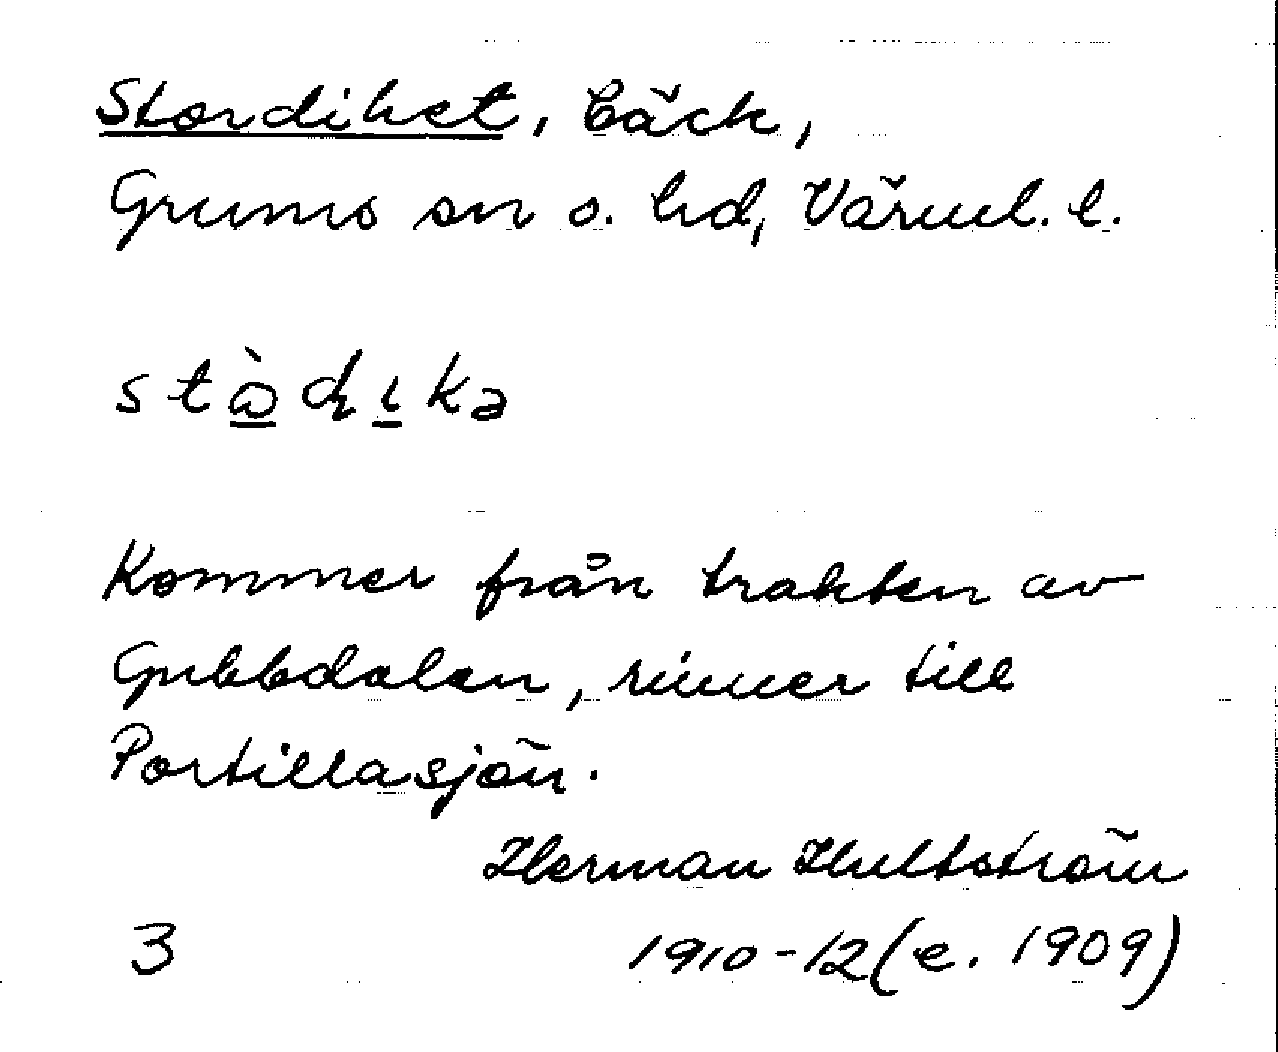 Stordiket, bäck,
Grums sn o. hd, Värml. l.
stɷ̀ɖɩkə
Kommer från trakten av
Gubbdalen, rinner till
Portillasjön.
Herman Hultström
3 1910-12 (e. 1909)